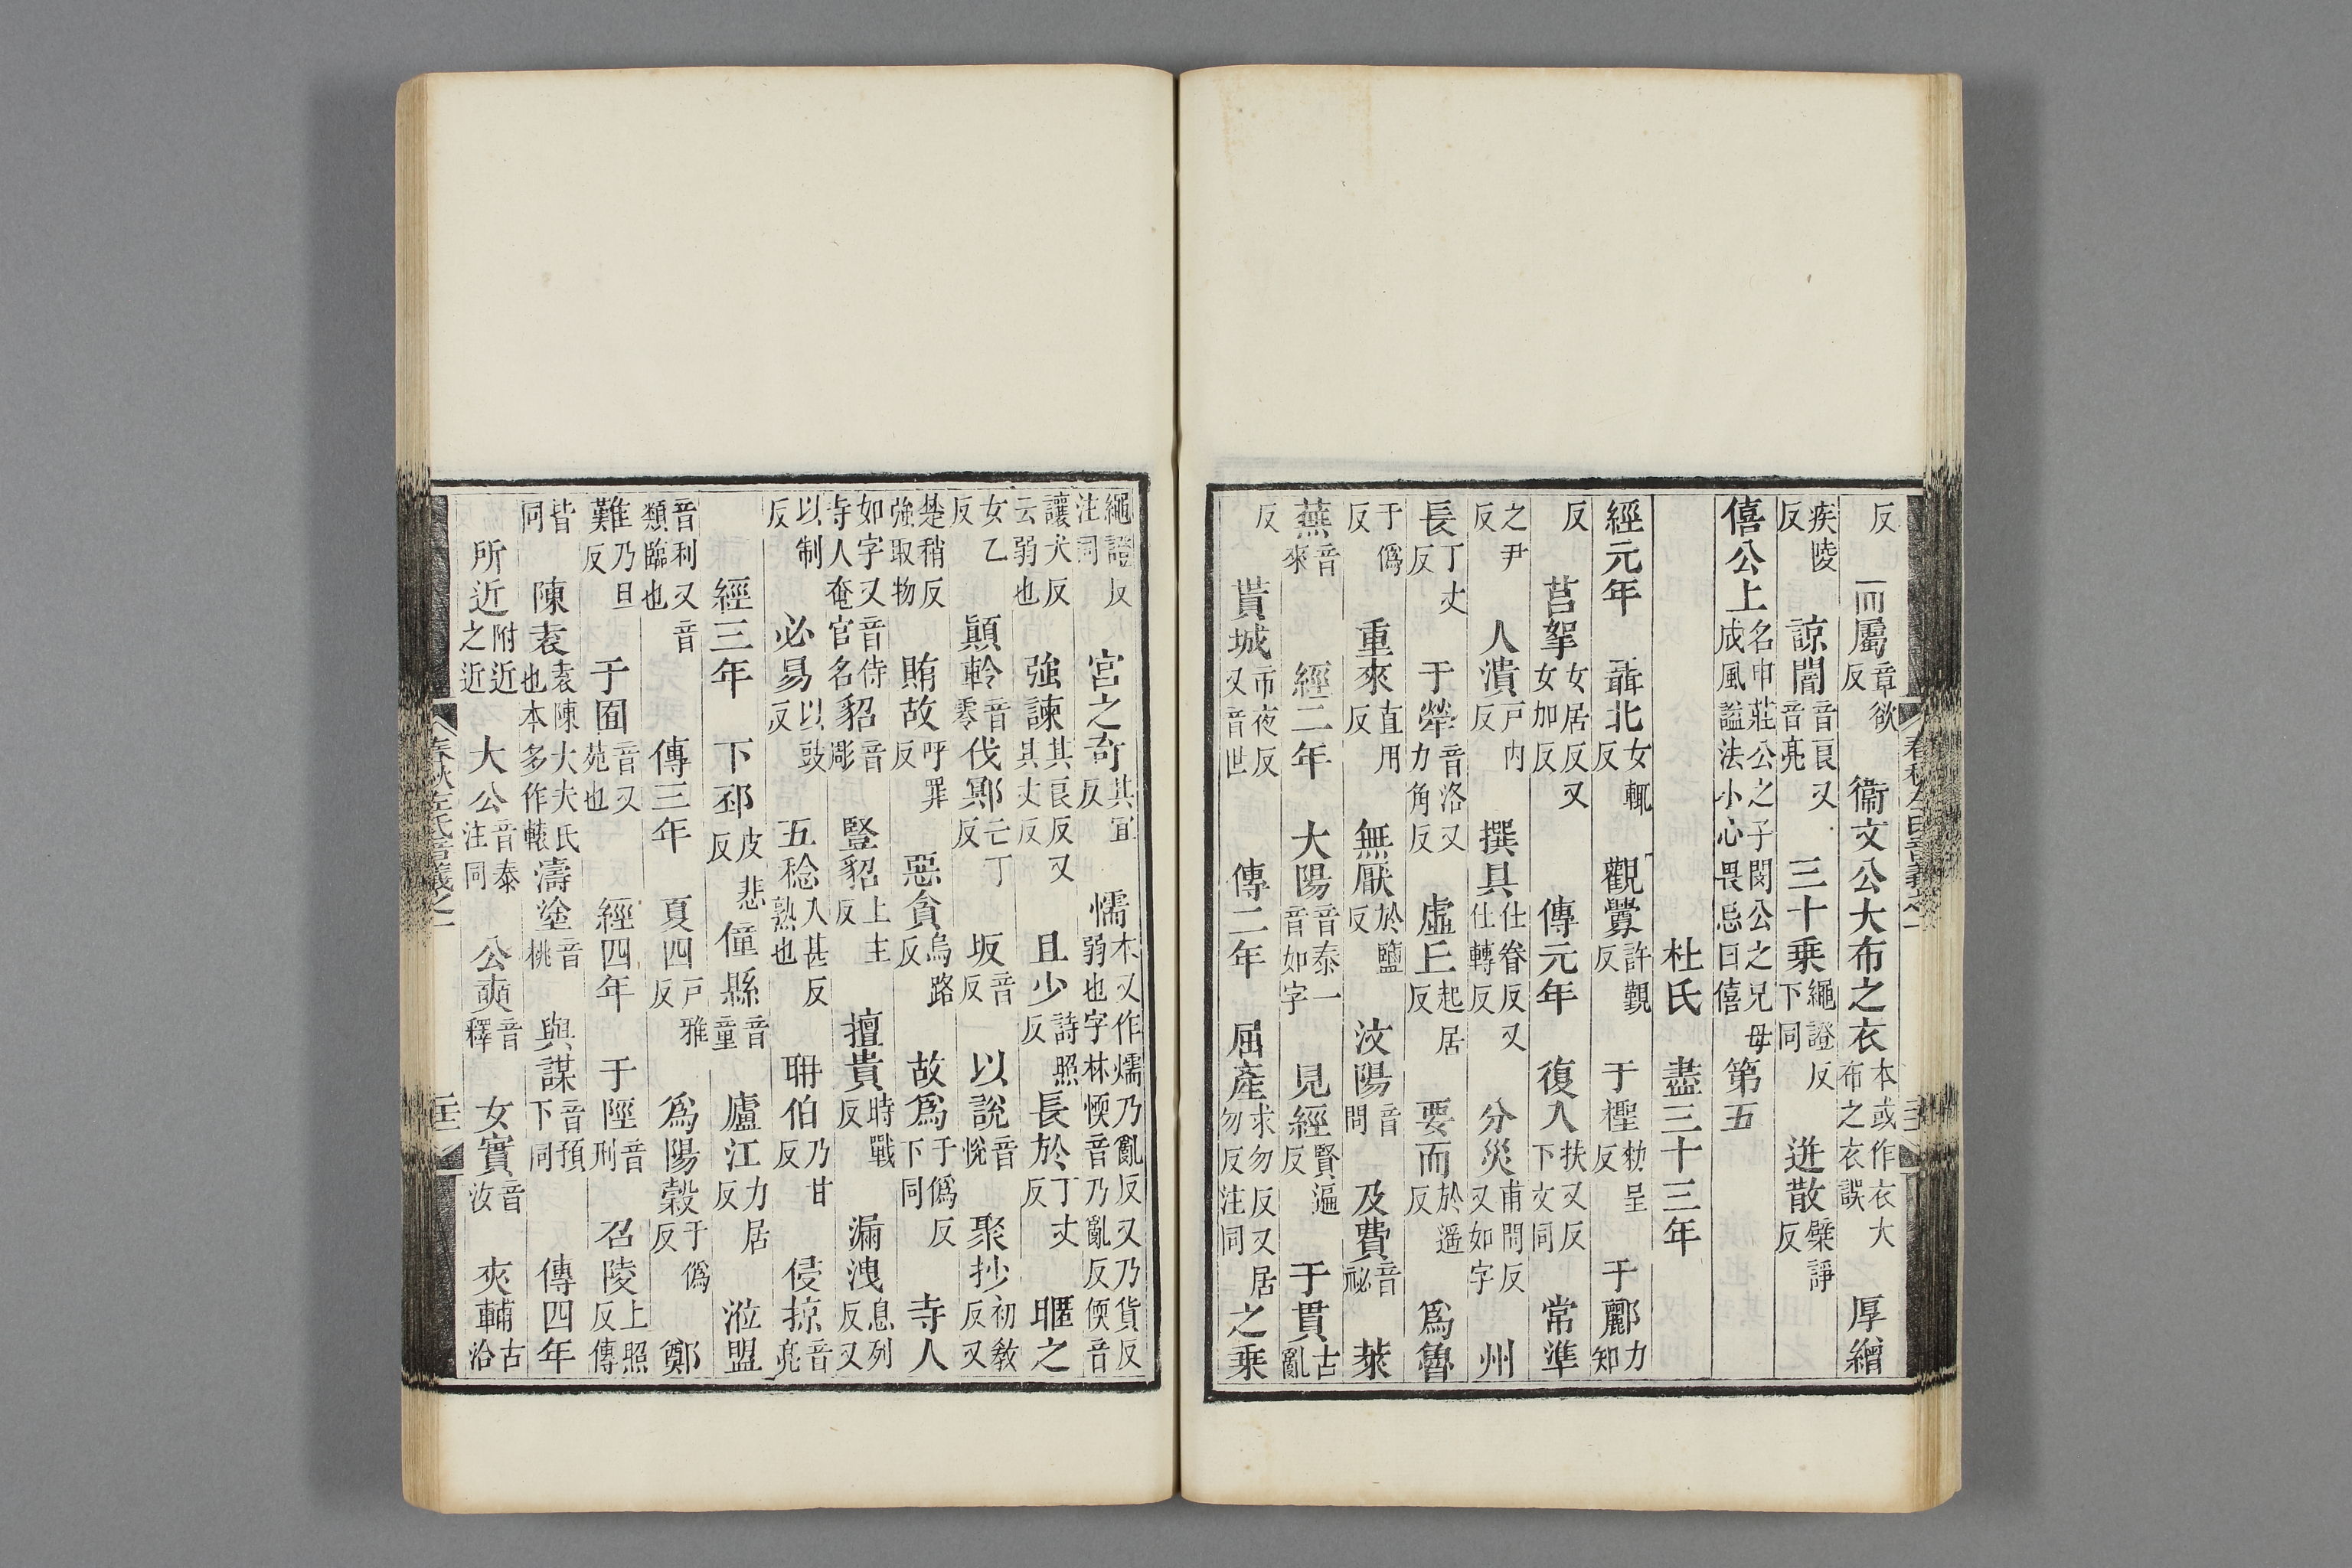 反　而屬章欲反　衞文公大布之衣本或作衣大布之衣誤　厚繒
疾陵反　諒闇音良又音亮　三十乗繩證反下同　迸散檗諍反
僖公上名申莊公之子閔公之兄母成風謚法小心畏忌曰僖　第五
杜氏　盡三十三年
經元年　聶北女輒反　觀釁許覲反　于檉勑呈反　于酈力知
反　莒挐女居反又女加反　傳元年　復入扶又反下文同　常準
之尹反　人潰戸内反　撰具仕眷反又仕轉反　分災甫問反又如字　州
長丁丈反　于犖音洛又力角反　虛丘起居反　要而於遥反　爲魯
于僞反　重來直用反　無厭於鹽反　汶陽音問　及費音祕　萊
蕪音來　經二年　大陽音泰一音如字　見經賢遍反　于貫古亂
反　貰城市夜反又音世　傳二年　屈產求勿反又居勿反注同　之乗
繩證反注同　宮之奇其宜反　懦本又作燸乃亂反又乃貨反弱也字林愞音乃亂反偄音
讓犬反云弱也　強諫其良反又其丈反　且少詩照反　長於丁丈反　暱之
女乙反　顚軨音零　伐鄍亡丁反　坂音反　以說音悅　聚抄初敎反又
楚稍反強取物　賄故呼罪反　惡貪烏路反　故爲于僞反下同　寺人
如字又音侍寺人奄官名　貂音彫　豎貂上主反　擅貴時戰反　漏洩息列反又
以制反　必易以豉反　五稔入甚反熟也　耼伯乃甘反　侵掠音亮
經三年　下邳皮悲反　僮縣音童　廬江力居反　涖盟
音利又音類臨也　傳三年　夏四戸雅反　爲陽穀于僞反　鄭
難乃旦反　于囿音又苑也　經四年　于陘音刑　召陵上照反傳
皆同　陳袁袁陳大夫氏也本多作轅　濤塗音桃　與謀音預下同　傳四年
所近附近之近　大公音泰注同　公奭音釋　女實音汝　夾輔古洽